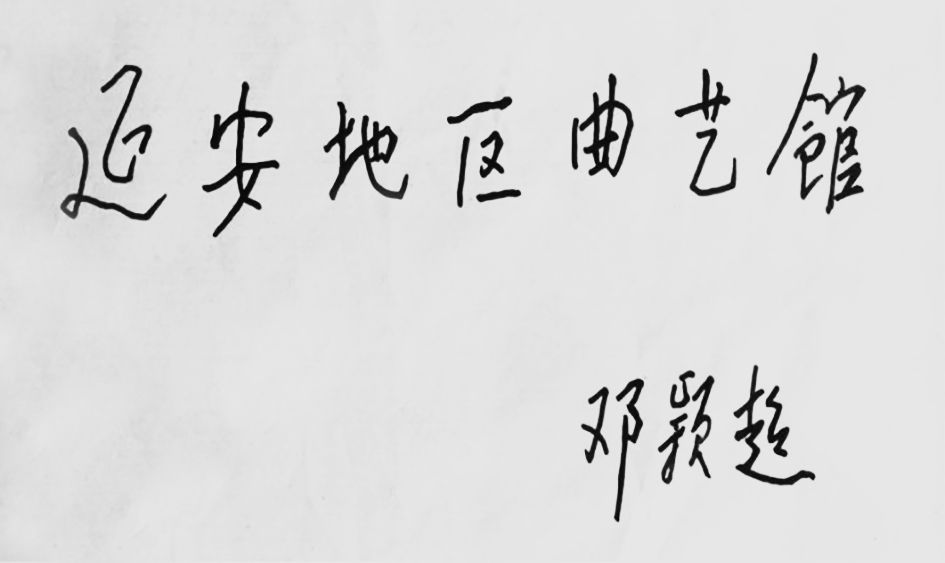 延安地区曲艺館
邓颖超